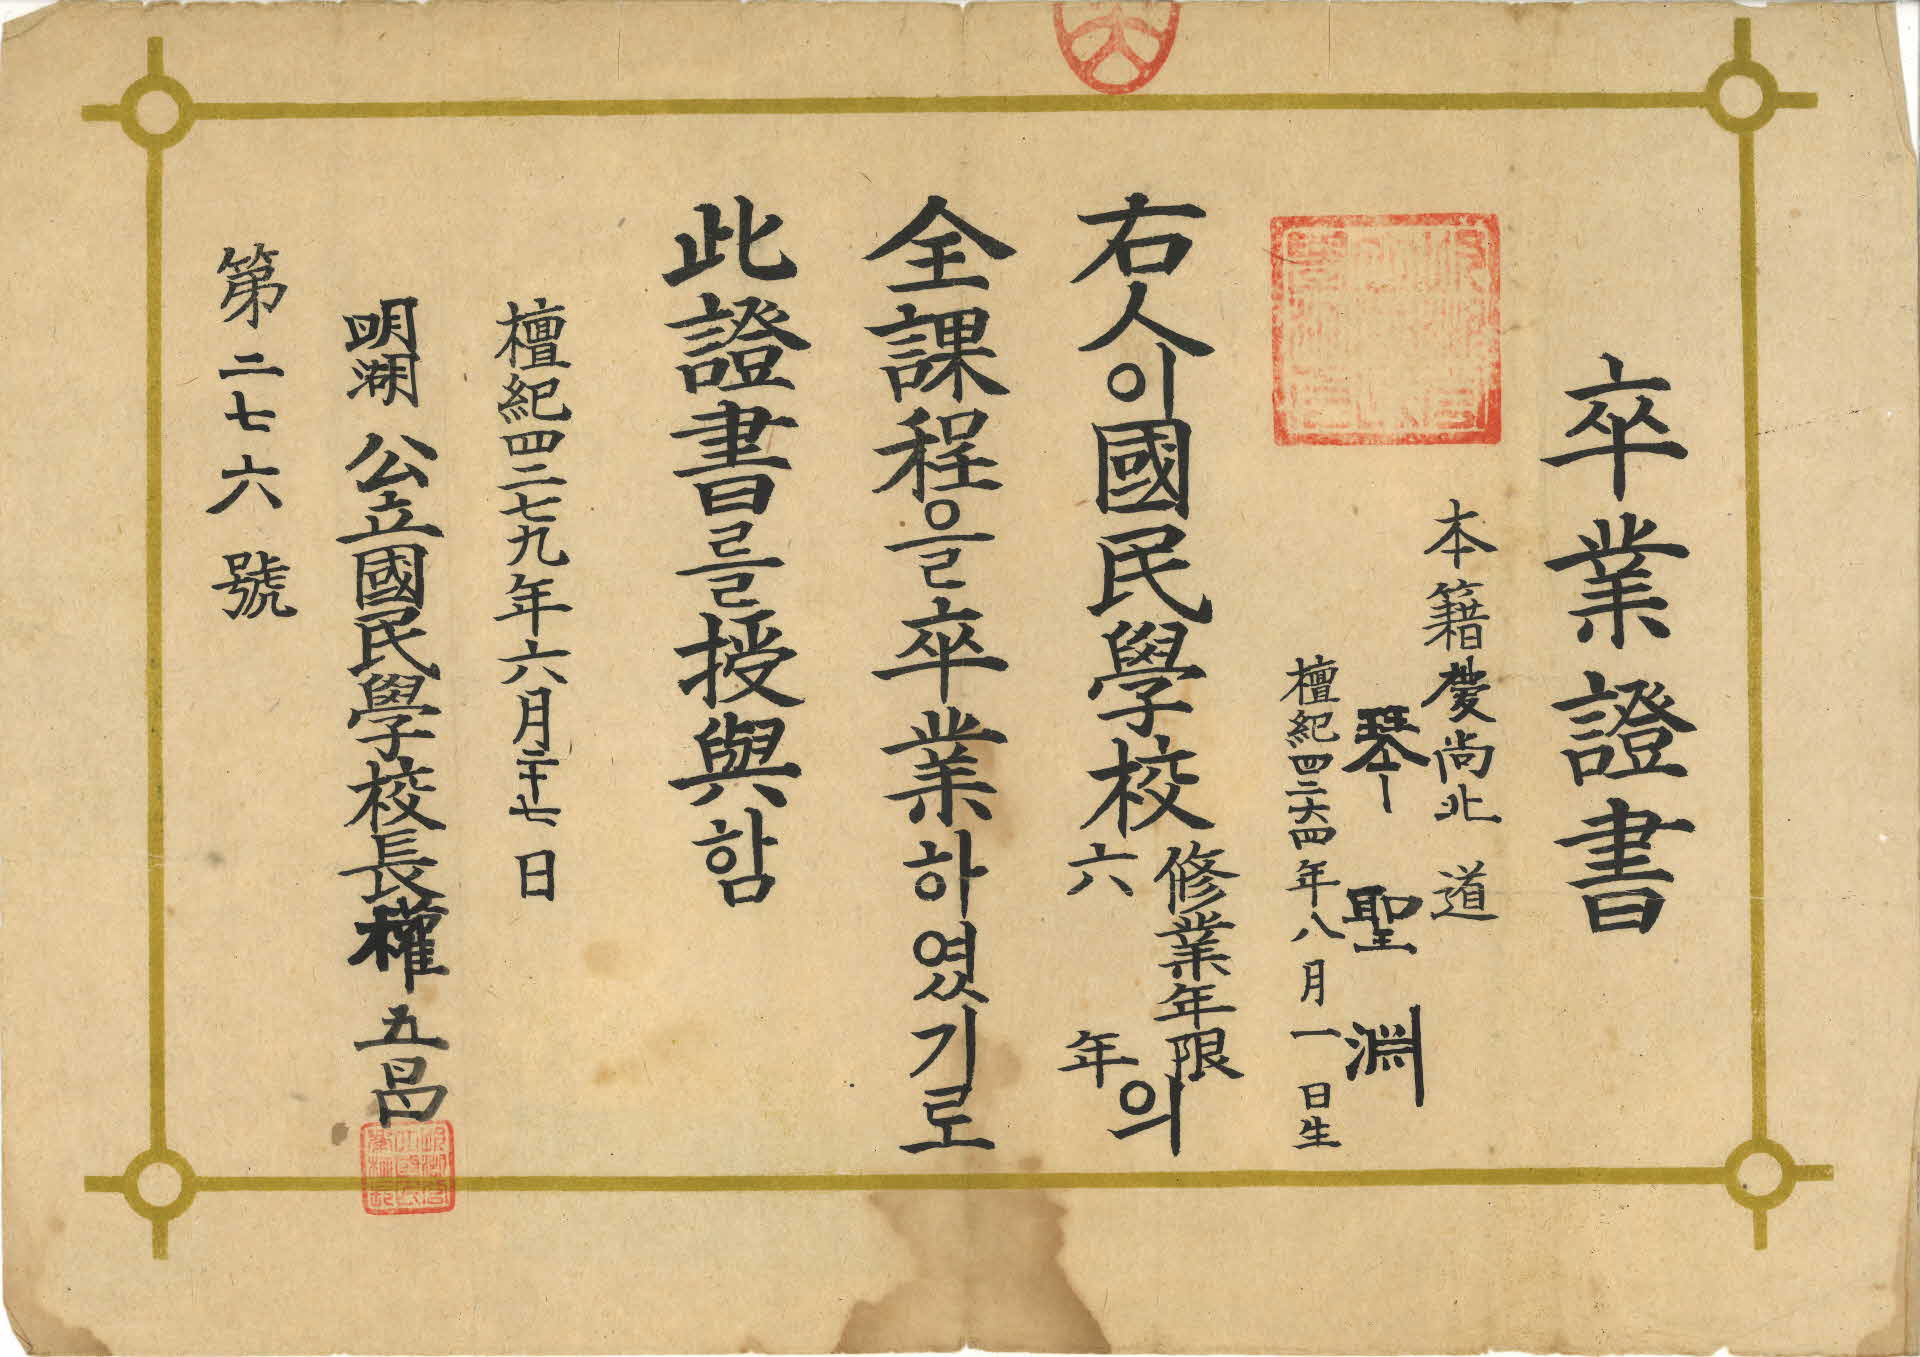 卒業證書
本籍慶尚北道
琴聖淵
檀紀四二六四年八月一日生
右人이國民學校修業年限六年의
全課程을卒業하였기로
此證書를授與함
檀紀四二七九年六月二十七日
明湖公立國民學校長權五昌
第二七六號